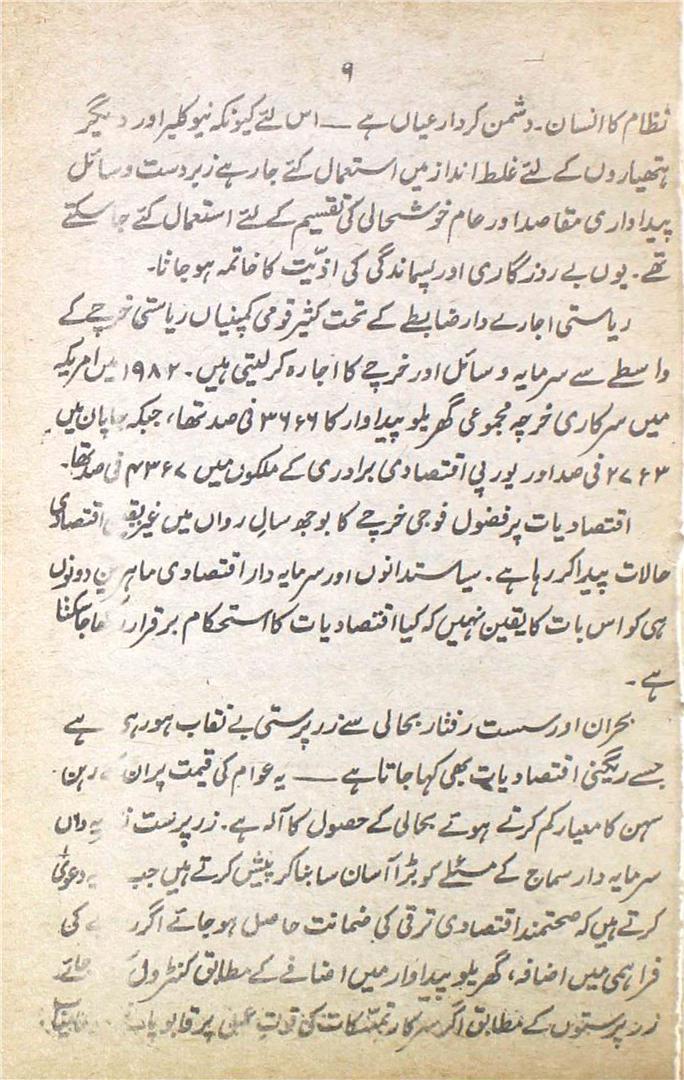 ۹
نظام کا انسان۔ دشمن کردار عیاں ہے — اس لئے کیونکہ نیوکلیر اور دیگر
ہتھیاروں کے لئے غلط انداز میں استعمال کئے جا رہے زبردست وسائل
پیداواری مقاصد اور عام خوشحالی کی تقسیم کے لئے استعمال کئے جا سکتے
تھے۔ یوں بے روزگاری اور پسماندگی کی اذیّت کا خاتمہ ہو جاتا۔
ریاستی اجارے دار ضابطے کے تحت کثیر قومی کمپنیاں ریاستی خرچے کے
واسطے سے سرمایہ وسائل اور خرچے کا اجارہ کر لیتی ہیں۔ ۱۹۸۲ میں امریکہ
میں سرکاری خرچہ مجموعی گھریلو پیداوار کا ۳۶ء۶ فی صد تھا، جبکہ جاپان میں
۲۷ء۳ فی صد اور یورپی اقتصادی برادری کے ملکوں میں ۴۳ء۷ فی صد تھا۔
اقتصادیات پر فضول فوجی خرچے کا بوجھ سالِ رواں میں غیر یقینی اقتصادی
حالات پیدا کر رہا ہے۔ سیاستدانوں اور سرمایہ دار اقتصادی ماہرین دونوں
ہی کو اس بات کا یقین نہیں کہ کیا اقتصادیات کا استحکام برقرار رکھا جا سکتا
ہے۔
بحران اور سست رفتار بحالی سے زر پرستی بے نقاب ہو رہی ہے
جسے ریگنی اقتصادیات بھی کہا جاتا ہے — یہ عوام کی قیمت پر ان کے رہن
سہن کا معیار کم کرتے ہوئے بحالی کے حصول کا آلہ ہے۔ زر پرست
سرمایہ دار سماج کے مسئلے کو بڑا آسان سا بنا کر پیش کرتے ہیں جب یہ دعویٰ
کرتے ہیں کہ صحتمند اقتصادی ترقی کی ضمانت حاصل ہو جائے اگر کی
فراہمی میں اضافہ، گھریلو پیداوار میں اضافے کے مطابق کنٹرول جائے
زر پرستوں کے مطابق اگر سرکار تمسکات کی قوتِ عمل پر قابو